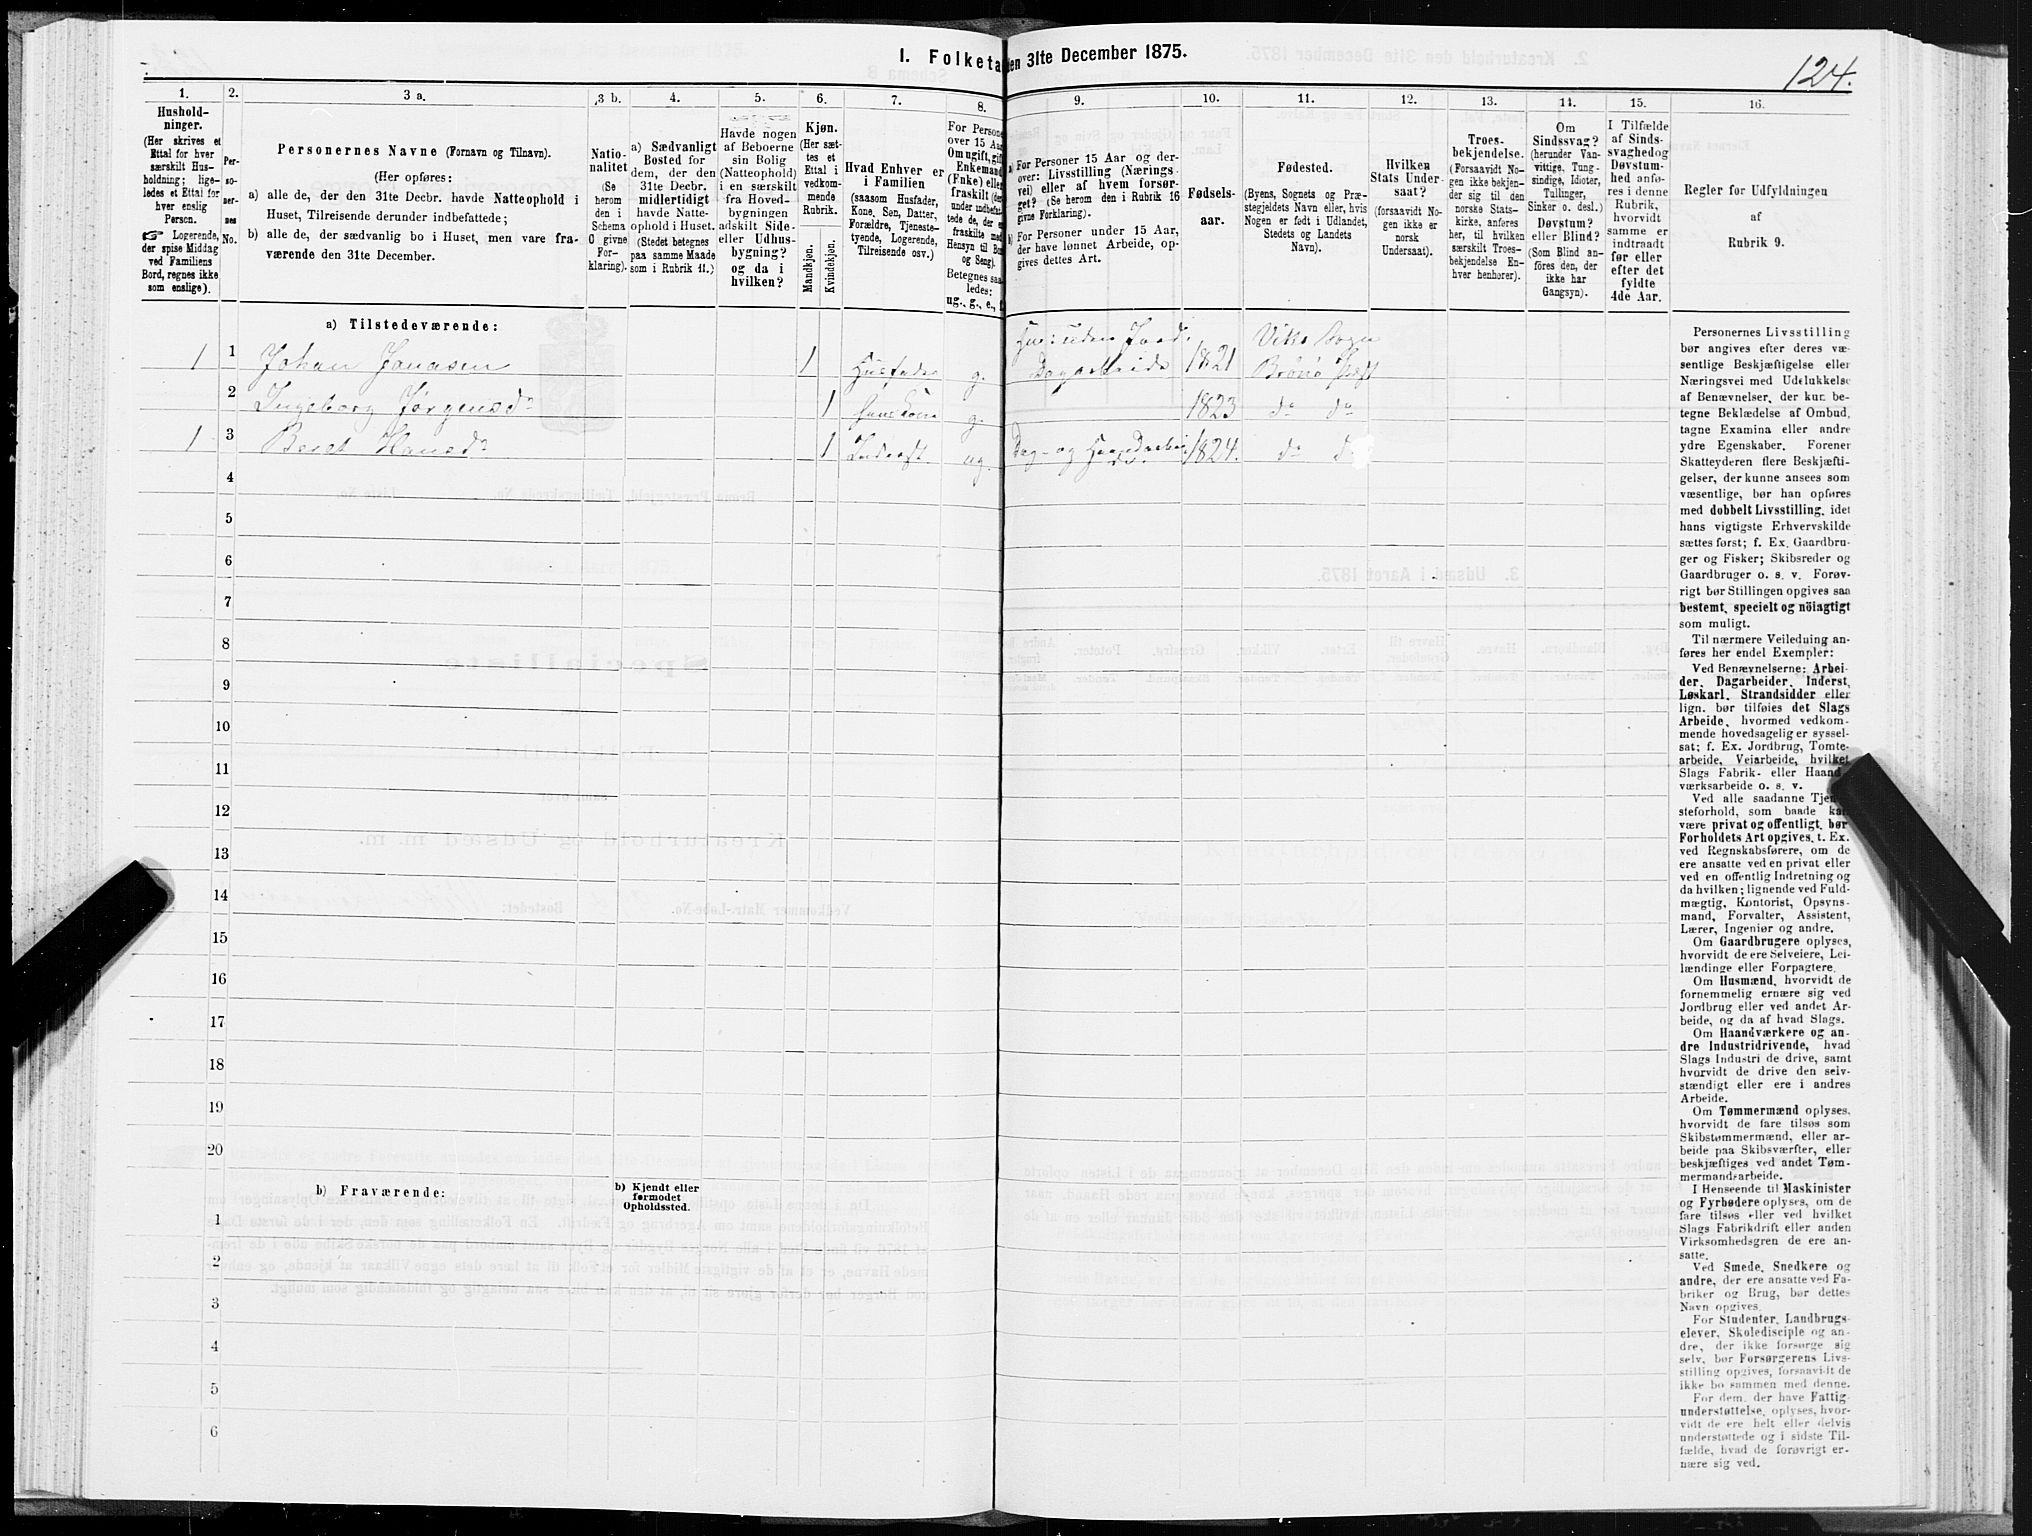 I. Folketa
en 31te December 1875.
124.
1.
2.
3 a.
3 b.
4.
5.
6.
7.
8.
9.
10.
11.
12.
13.
14.
15.
16.
Hushold-
ninger.
(Her skrives et
Ettal for hver
særskilt Hus-
holdning; lige-
ledes et Ettal for
hver enslig
Person.
☞ Logerende,
der spise Middag
ved Familiens
Bord, regnes ikke
som enslige).
Per-
so-
ner-
nes
No.
Personernes Navne (Fornavn og Tilnavn).
(Her opføres:
a) alle de, der den 31te Decbr. havde Natteophold i
Huset, Tilreisende derunder indbefattede;
b) alle de, der sædvanlig bo i Huset, men vare fra-
værende den 31te December.
Natio-
nalitet
(Se
herom
den i
Schema
C givne
For-
klaring).
a) Sædvanligt
Bosted for
dem, der den
31te Decbr.
midlertidigt
havde Natte-
ophold i Huset.
(Stedet betegnes
paa samme Maade
som i Rubrik 11.)
Havde nogen
af Beboerne
sin Bolig
(Natteophold)
i en særskilt
fra Hoved-
bygningen
adskilt Side-
eller Udhus-
bygning?
og da i
hvilken?
Kjøn.
(Her sæt-
tes et
Ettal i
vedkom-
mende
Rubrik.
Mandkjøn.
Kvindekjøn.
Hvad Enhver er
i Familien
(saasom Husfader,
Kone, Søn, Datter,
Forældre, Tjeneste-
tyende, Logerende,
Tilreisende osv.)
For Persone
over 15 Aa
Om ugift, gif
Enkemand
(Enke) elle
fraskilt (de
under indbefat
tede de, der e
fraskilte me
Hensyn til Bo
og Seng).
Betegnes saa
ledes:
ug., g., e.,
a) For Personer 15 Aar og der-
over: Livsstilling (Nærings
vei) eller af hvem forsør-
get? (Se herom den i Rubrik 16
givne Forklaring).
b) For Personer under 15 Aar,
der have lønnet Arbeide, op-
gives dettes Art.
Fødsels-
aar.
Fødested.
(Byens, Sognets og Præ-
stegjeldets Navn eller, hvis
Nogen er født i Udlandet,
Stedets og Landets
Navn).
Hvilken
Stats Under-
saat?
(forsaavidt No-
gen ikke er
norsk
Undersaat).
Troes-
bekjendelse.
(Forsaavidt No-
gen ikke bekjen-
der sig til den
norske Stats-
kirke, anføres
her, til hvilken
særskilt Troes-
bekjendelse En-
hver henhører).
Om
Sindssvag?
(herunder Van-
vittige, Tung-
sindige, Idioter,
Tullinger,
Sinker o. desl.)
Døvstum?
eller Blind?
(Som Blind an-
føres den, der
ikke har
Gangsyn).
I Tilfælde
af Sinds-
svaghed og
Døvstum-
hed anfø-
res i denne
Rubrik,
hvorvidt
samme er
indtraadt
før eller
efter det
fyldte
4de Aar.
Regler for Udfyldningen
af
Rubrik 9.
a) Tilstedeværende:
1 1 Johan Jonasen 1 Husfader g. Hus: uden Jord. Dagarbeide 1821 Viks Sogn Brønø Præst
2 Ingeborg Jørgensdr 1 hans Kone g. 1823 do do
1 3 Beret Hansdr 1 Inderst. ug. Dag- og Haandarbei 1824. do
4
5
6
7
8
9
10
11
12
13
14
15
16
17
18
19
20
b) Fraværende:
b) Kjendt eller
formodet
Opholdssted.
1
2
3
4
5
6
Personernes Livsstilling
bør angives efter deres væ-
sentlige Beskjæftigelse eller
Næringsvei med Udelukkelse
af Benævnelser, der kun be-
tegne Beklædelse af Ombud,
tagne Examina eller andre
ydre Egenskaber. Forener
Skatteyderen flere Beskjæfti-
gelser, der kunne ansees som
væsentlige, bør han opføres
med dobbelt Livsstilling, idet
hans vigtigste Erhvervskilde
sættes først; f. Ex. Gaardbru-
ger og Fisker; Skibsreder og
Gaardbruger o. s. v. Forøv-
rigt bør Stillingen opgives saa
bestemt, specielt og nöiagtigt
som muligt.
Til nærmere Veiledning an-
føres her endel Exempler:
Ved Benævnelserne: Arbei-
der, Dagarbeider, Inderst,
Løskarl, Strandsidder eller
lign. bør tilføies det Slags
Arbeide, hvormed vedkom-
mende hovedsagelig er syssel-
sat; f. Ex. Jordbrug, Tomte-
arbeide, Veiarbeide, hvilket
Slags Fabrik- eller Haand-
værksarbeide o. s. v.
Ved alle saadanne Tjen
steforhold, som baade ka
være privat og offentligt, bør
Forholdets Art opgives, t. Ex.
ved Regnskabsførere, om de
ere ansatte ved en privat eller
ved en offentlig Indretning og
da hvilken; lignende ved Fuld-
mægtig, Kontorist, Opsyns-
mand, Forvalter, Assistent,
Lærer, Ingeniør og andre.
Om Gaardbrugere oplyses,
hvorvidt de ere Selveiere, Lei-
lændinge eller Forpagtere.
Om Husmænd, hvorvidt de
fornemmelig ernære sig ved
Jordbrug eller ved andet Ar-
beide, og da af hvad Slags.
Om Haandværkere og an-
dre Industridrivende, hvad
Slags Industri de drive, samt
hvorvidt de drive den selv-
stændigt eller ere i andres
Arbeide.
Om Tømmermænd oplyses,
hvorvidt de fare tilsøs som
Skibstømmermænd, eller ar-
beide paa Skibsværfter, eller
beskjæftiges ved andet Tøm-
mermandsarbeide.
I Henseende til Maskinister
og Fyrbødere oplyses, om de
fare tilsøs eller ved hvilket
Slags Fabrikdrift eller anden
Virksomhedsgren de ere an-
satte.
Ved Smede, Snedkere og
andre, der ere ansatte ved Fa-
briker og Brug, bør dettes
Navn opgives.
For Studenter, Landbrugs-
elever, Skoledisciple og an-
dre, der ikke forsørge sig
selv, bør Forsørgerens Livs-
stilling opgives, forsaavidt de
ikke bo sammen med denne.
For dem, der have Fattig-
understøttelse, oplyses, hvor-
vidt de ere helt eller delvis
understøttede og i sidste Til-
fælde, hvad de forøvrigt er-
nære sig ved.